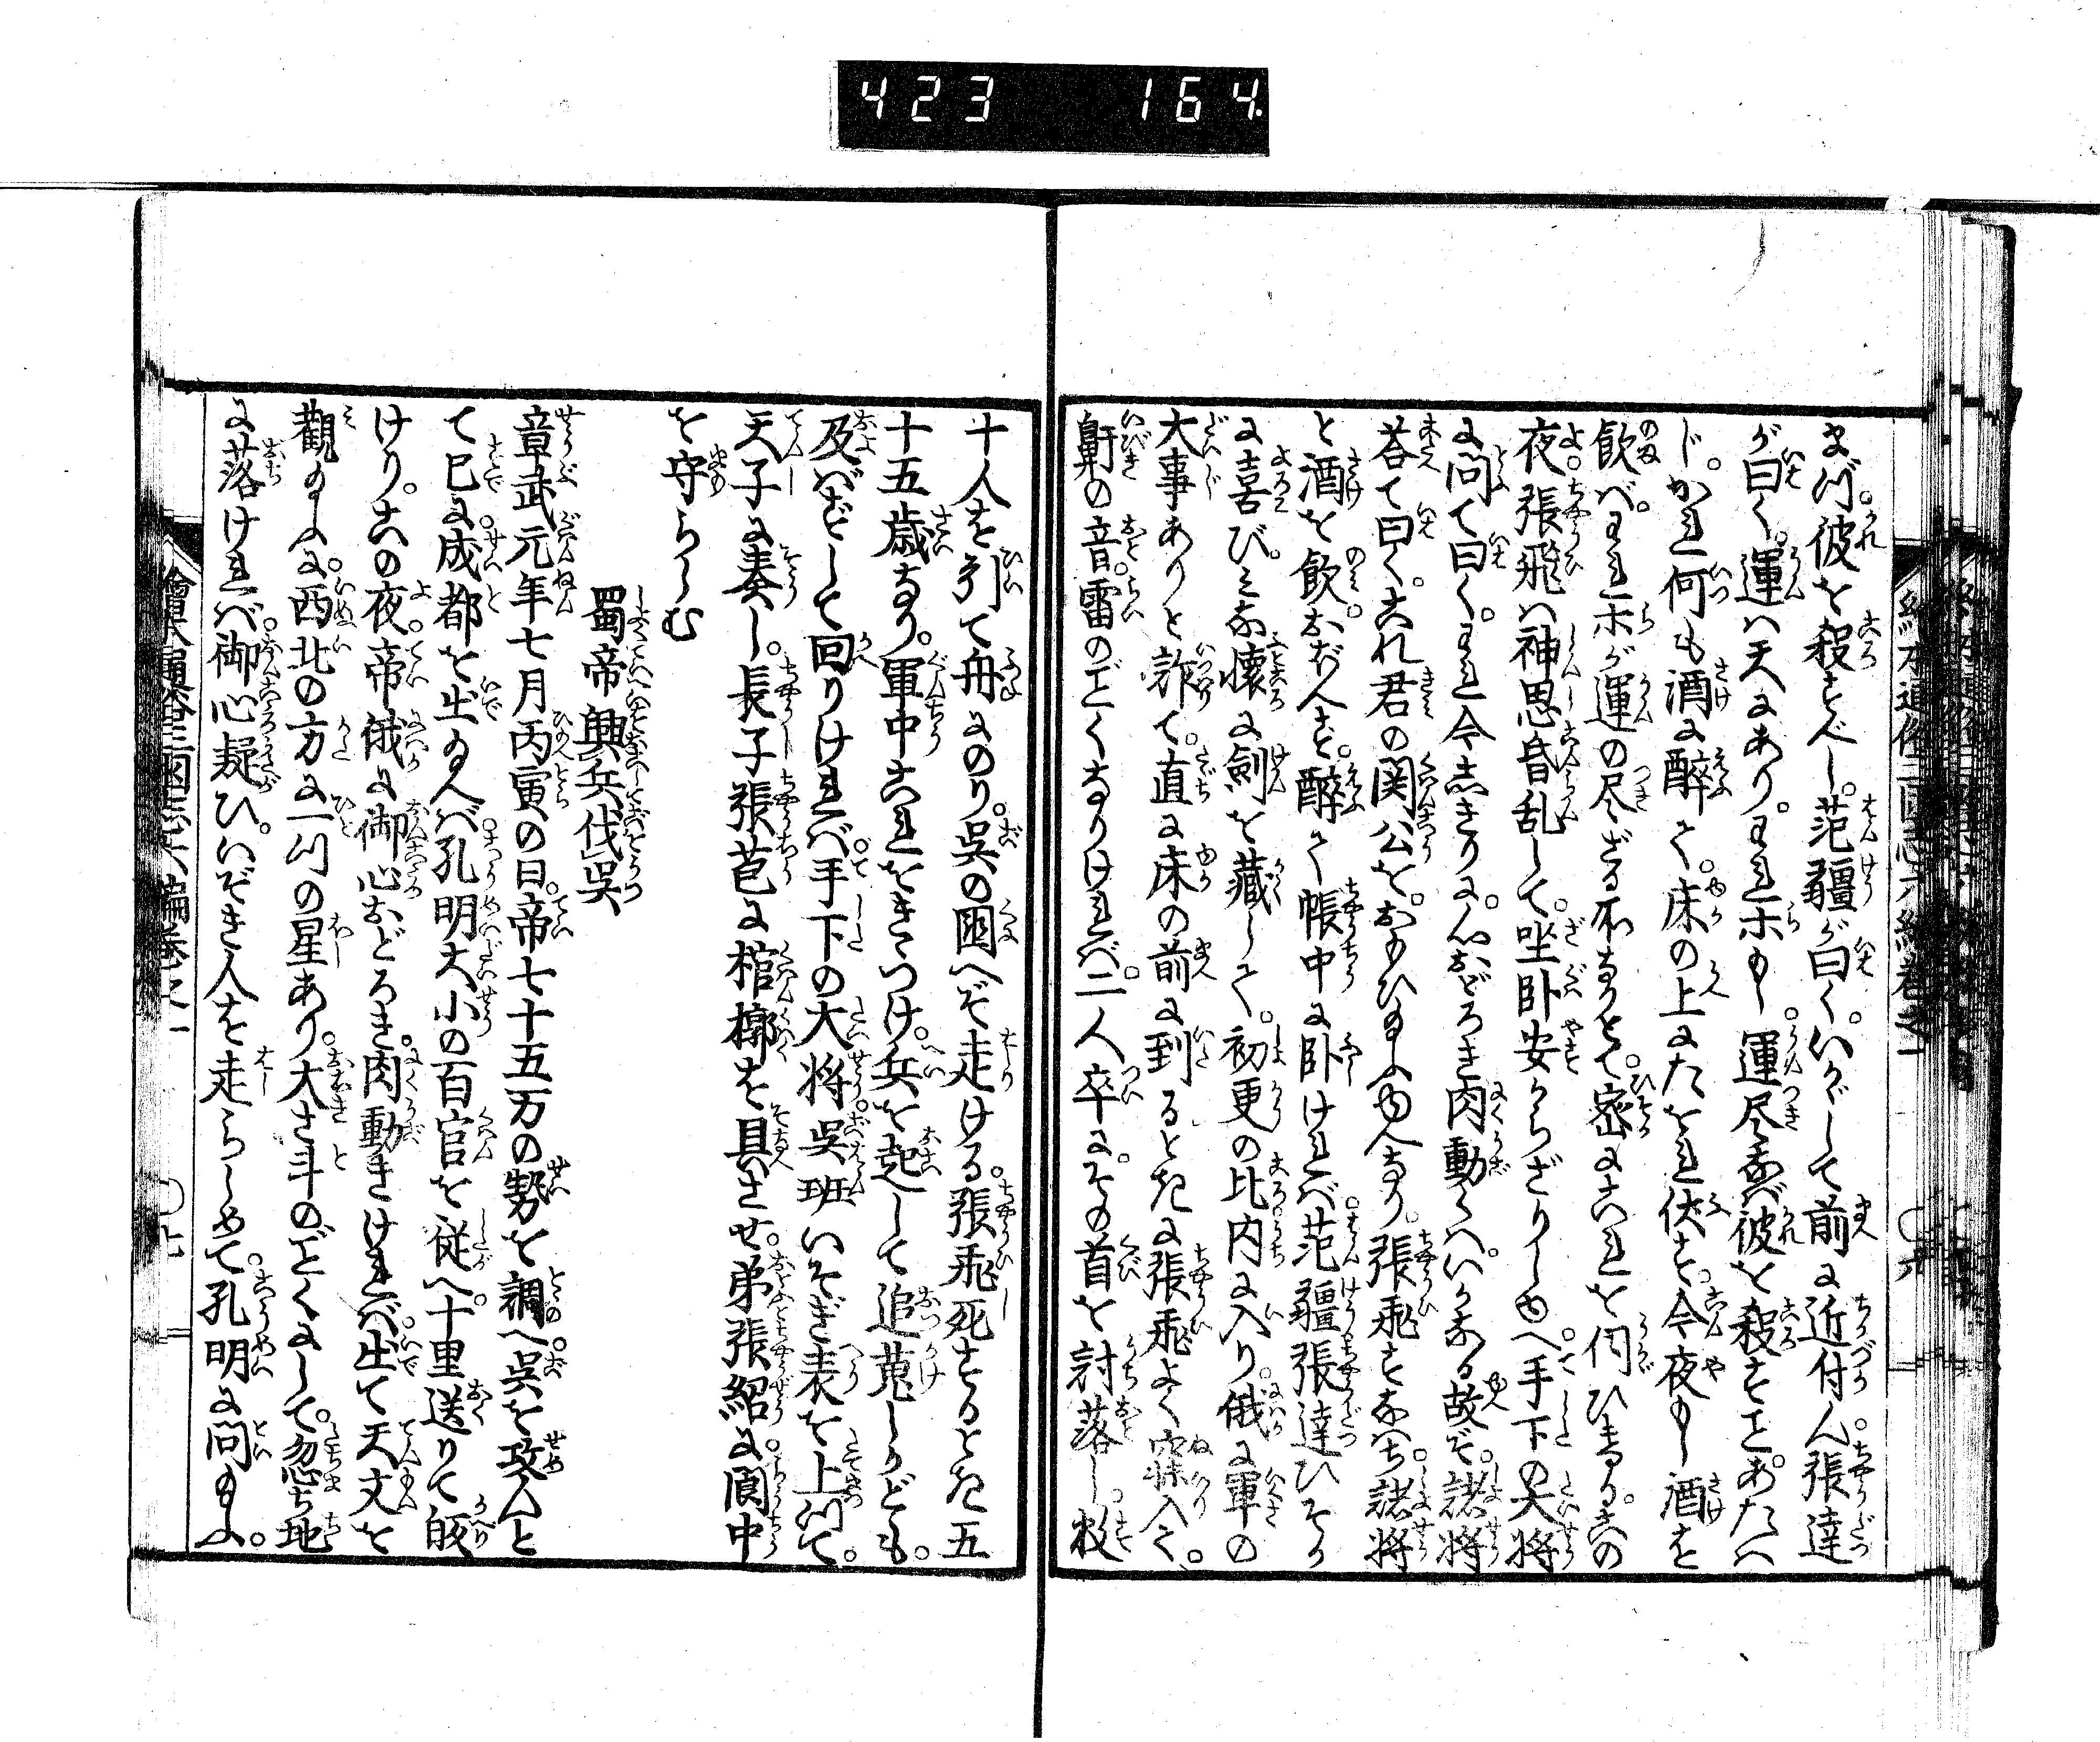 423 164
まづ。彼を殺すべし。范疆が曰く。いかゞして前に近付ん。張達
が曰く。運は天にあり。われホもし。運尽なば彼を殺すこと。あたは
じ。かれ何も酒に醉て。床の上にたをれ伏す。今夜もし酒を
飲べ。われホが運の尽ざる所なりとて。密にこれを伺ひける。この
夜。張飛は神思昏乱して。坐卧安からざりしゆへ。手下の大将
に問て曰く。われ今しきりに。心おどろき肉動くハ。いかなる故ぞ。諸将
荅て曰く。これ君の関公を。おもひ給ふゆへなり。張飛すなはち諸将
と酒を飲。おぼへず。醉て帳中に卧けれバ。范疆張達ひそか
に喜び。みな懐に剣を藏して。初更の比内に入り。俄に軍の
大事ありと詐て。直に床の前に到るときに張飛よく寐入て。
鼾の音。雷のごとくなりけれバ。二人卒に。その首を討落し。数
十人を引て舟にのり。呉の國へぞ走ける。張飛死するとき五
十五歳なり。軍中これをきゝつけ。兵を起して追蒐しかども。
及ばずして回りけれバ。手下の大将呉班いそぎ表を上つて。
天子に奏し。長子張苞に棺槨を具へさせ。弟張紹に閬中
を守らしむ
蜀帝興兵伐呉
章武元年七月丙寅の日。帝七十五万の勢を調へ。呉を攻んと
て已に。成都を出給へバ。孔明大小の百官を従へ。十里送りて皈
けり。この夜。帝俄に御心おどろき。肉動きけれバ。出て天文を
觀給ふに。西北の方に一つの星あり。大さ斗のごとくにして。忽ち地
に落けれバ。御心疑ひ。いそぎ人を走らしめて。孔明に問給ふ。